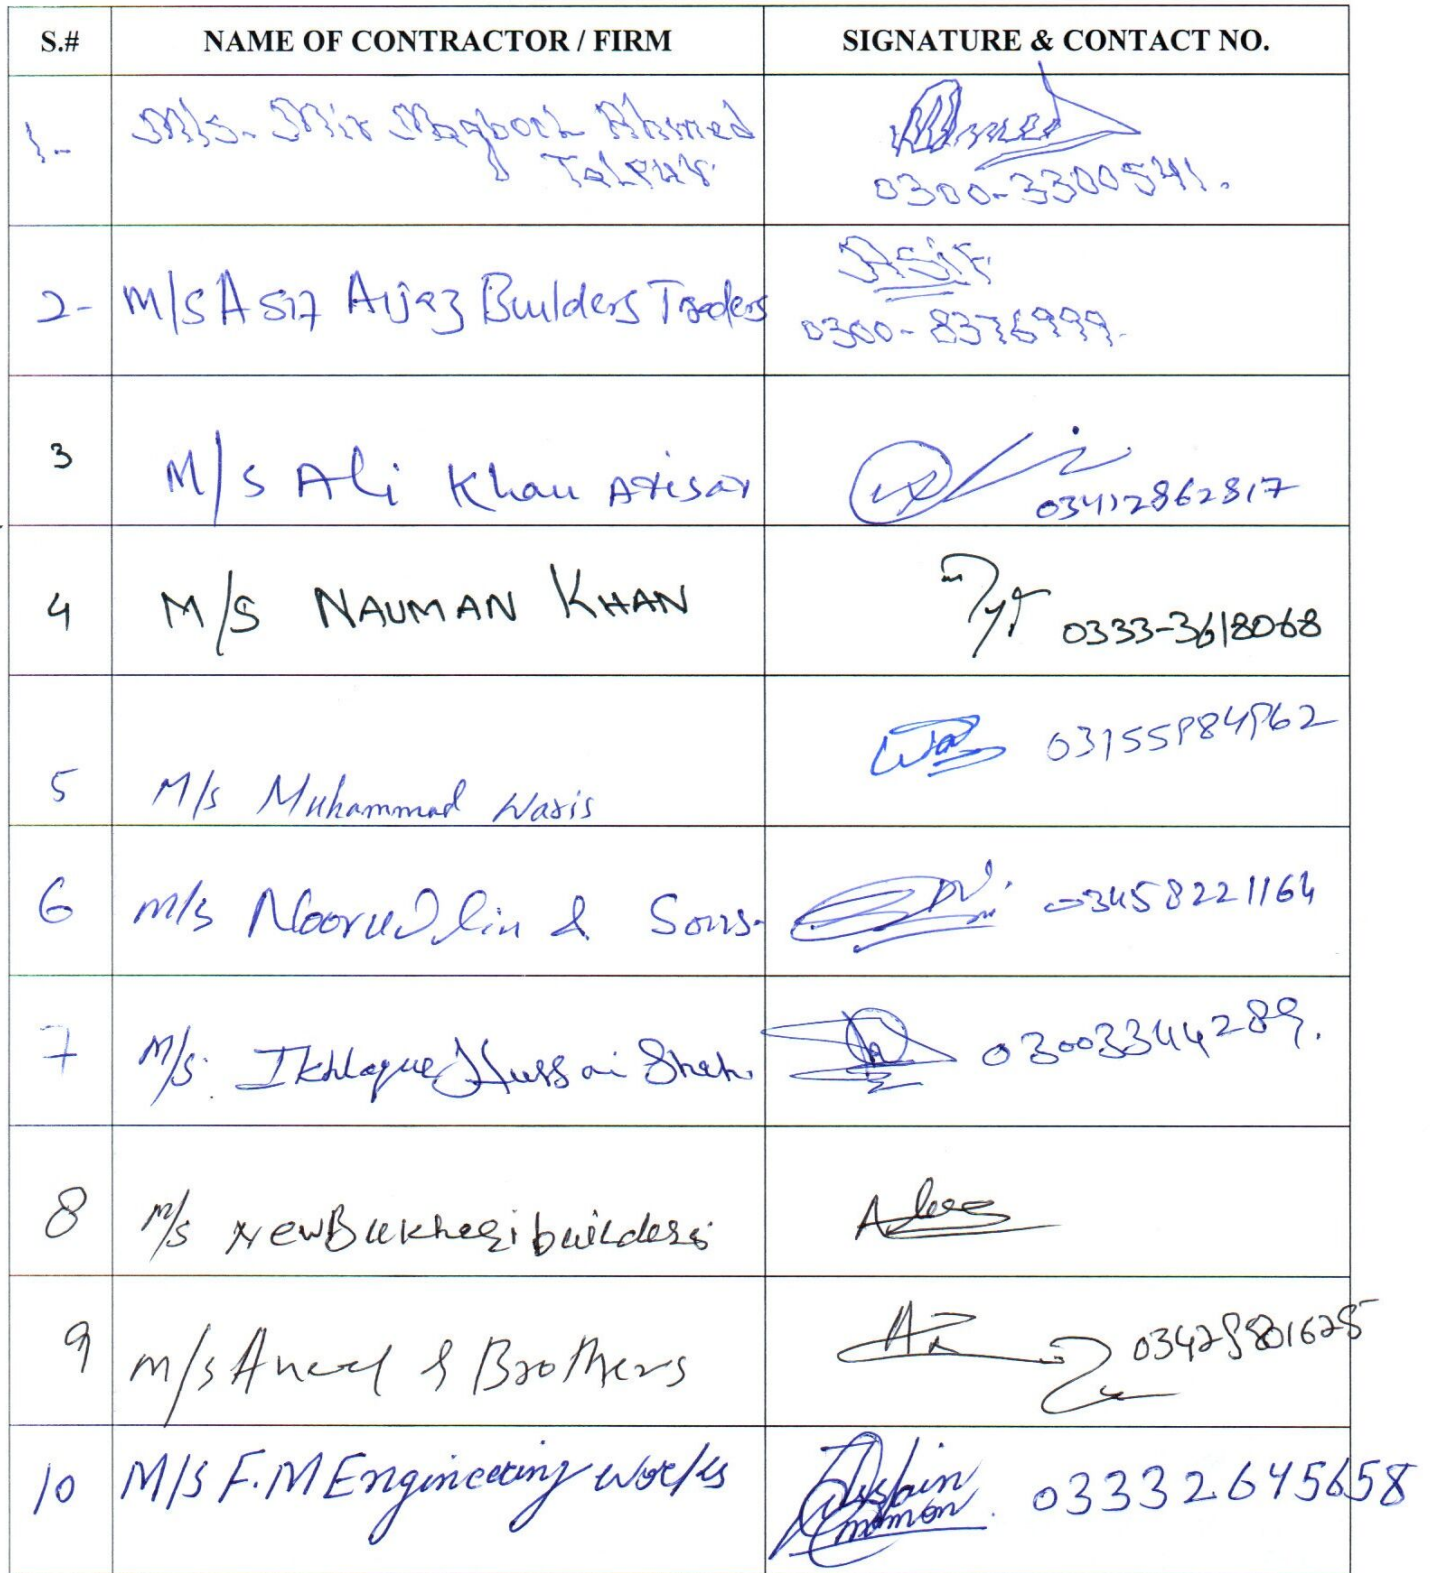 S.# NAME OF CONTRACTOR / FIRM SIGNATURE & CONTACT NO.
1- M/s. Mir Maqbool Ahmed
Talpur.
0300-3300541.
2- M/S Asif Aijaz Builders Traders
Asif
0300-8376999.
3 M/S Ali Khan Arisar
03412862817
4 M/S NAUMAN KHAN 0333-3618068
5 M/s Muhammad Waris 03155984962
6 M/s Nooruddin & Sons. 03458221164
7 M/s. Ikhlaque Hussain Shah. 03003344289.
8 M/s New Bukhari builders
9 M/s & Brothers
10 M/S F.M Engineering works 03332645658